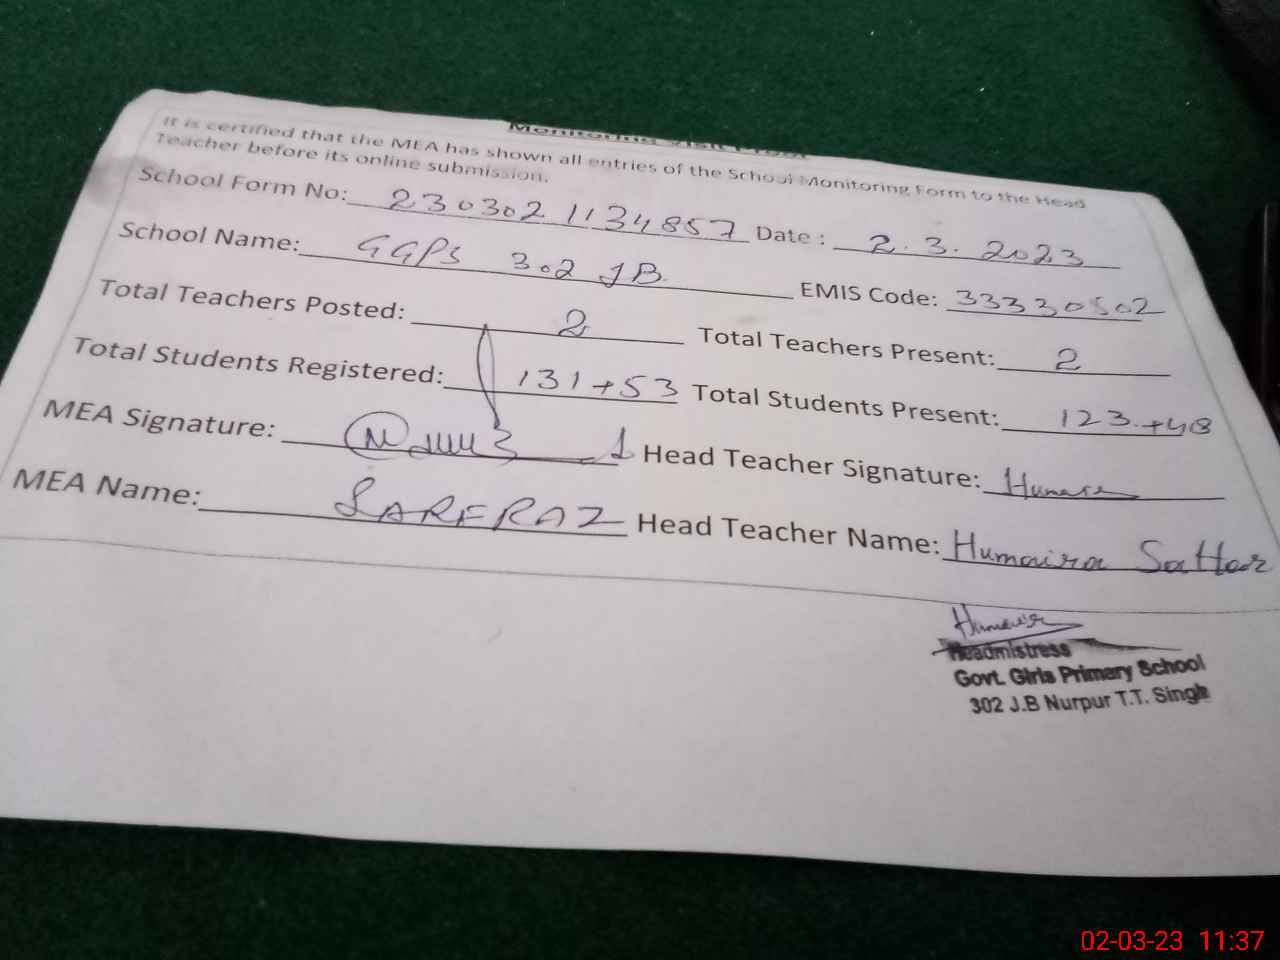 Monitoring Visit Proof
It is certified that the MEA has shown all entries of the School Monitoring Form to the Head
Teacher before its online submission.
School Form No: 2303021134857 Date : 2.3.2023
School Name: GGPS 302 JB EMIS Code: 33330502
Total Teachers Posted: 2 Total Teachers Present: 2
Total Students Registered: 131+53 Total Students Present: 123+48
MEA Signature: Head Teacher Signature: Humaira
MEA Name: SARFRAZ Head Teacher Name: Humaira Sattar
Humaira
Headmistress
Govt. Girls Primary School
302 J.B Nurpur T.T. Singh
02-03-23 11:37